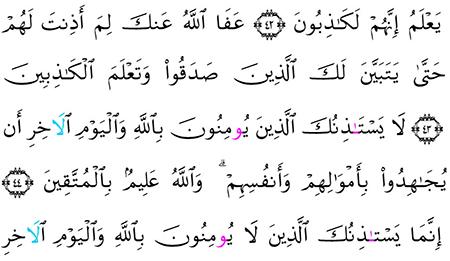 يَعْلَمُ إِنَّهُمْ لَكَٰذِبُونَ ٤٢ عَفَا ٱللَّهُ عَنكَ لِمَ أَذِنتَ لَهُمْ
حَتَّىٰ يَتَبَيَّنَ لَكَ ٱلَّذِينَ صَدَقُوا۟ وَتَعْلَمَ ٱلْكَٰذِبِينَ
٤٣ لَا يَسْتَـٰذِنُكَ ٱلَّذِينَ يُومِنُونَ بِٱللَّهِ وَٱلْيَوْمِ ٱلَاخِرِ أَن
يُجَٰهِدُوا۟ بِأَمْوَٰلِهِمْ وَأَنفُسِهِمْ ۗ وَٱللَّهُ عَلِيمٌۢ بِٱلْمُتَّقِينَ ٤٤
إِنَّمَا يَسْتَـٰذِنُكَ ٱلَّذِينَ لَا يُومِنُونَ بِٱللَّهِ وَٱلْيَوْمِ ٱلَاخِرِ